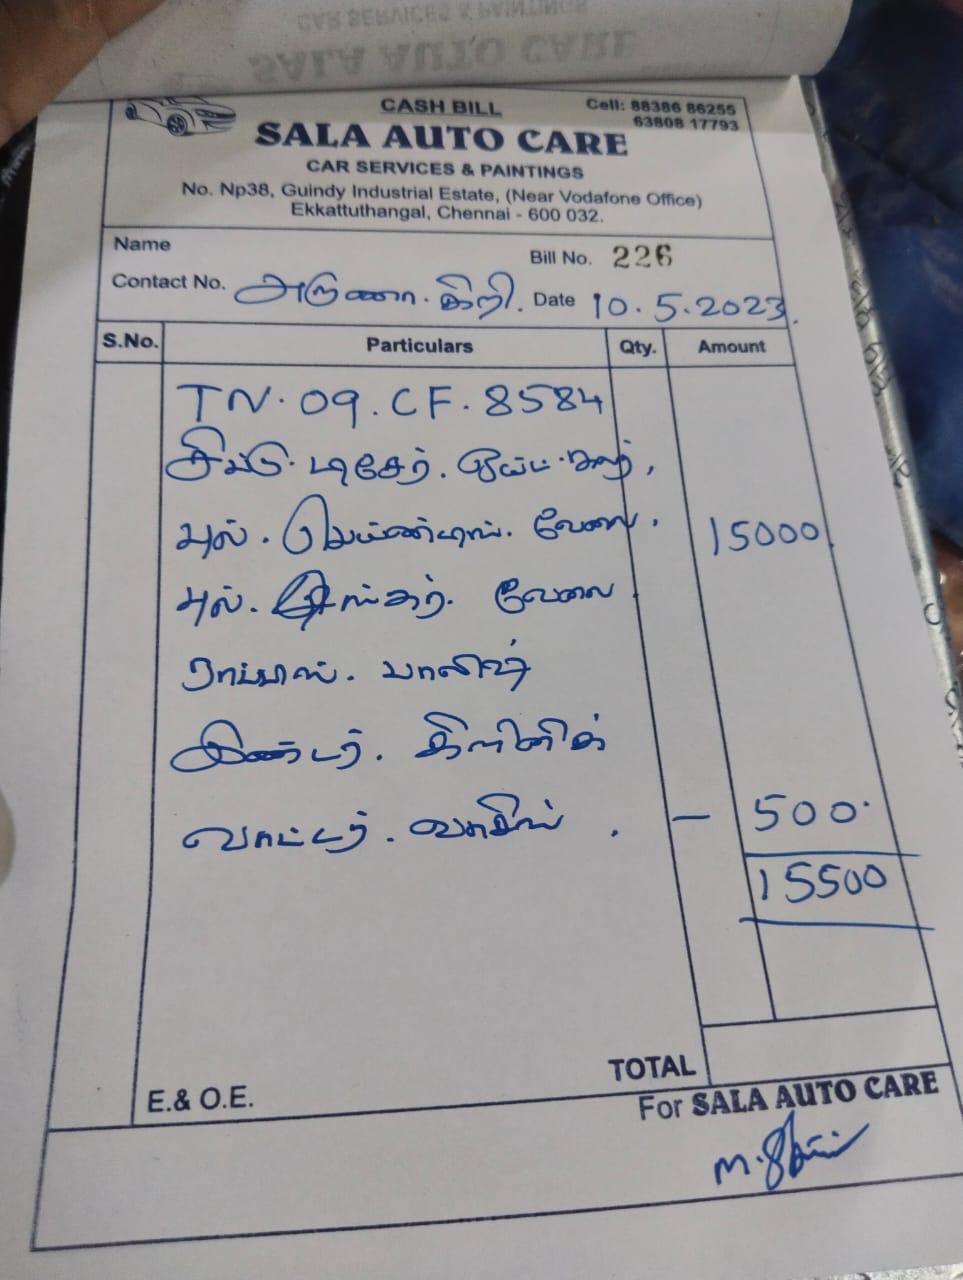 CASH BILL
Cell: 88386 86255
63808 17793
SALA AUTO CARE
CAR SERVICES & PAINTINGS
No. Np38, Guindy Industrial Estate, (Near Vodafone Office)
Ekkattuthangal, Chennai - 600 032.
Name
Bill No. 226
Contact No. அருணா. கிரி. Date 10.5.2023.
S.No. Particulars Qty. Amount
TN. 09. CF. 8584
டிசேர்.
புல். வேலை. 15000
புல். வேலை
பாலிஷ்
இண்டர். கிளினிக்
வாட்டர். வாசிங். - 500
15500
TOTAL
E.& O.E.
For SALA AUTO CARE